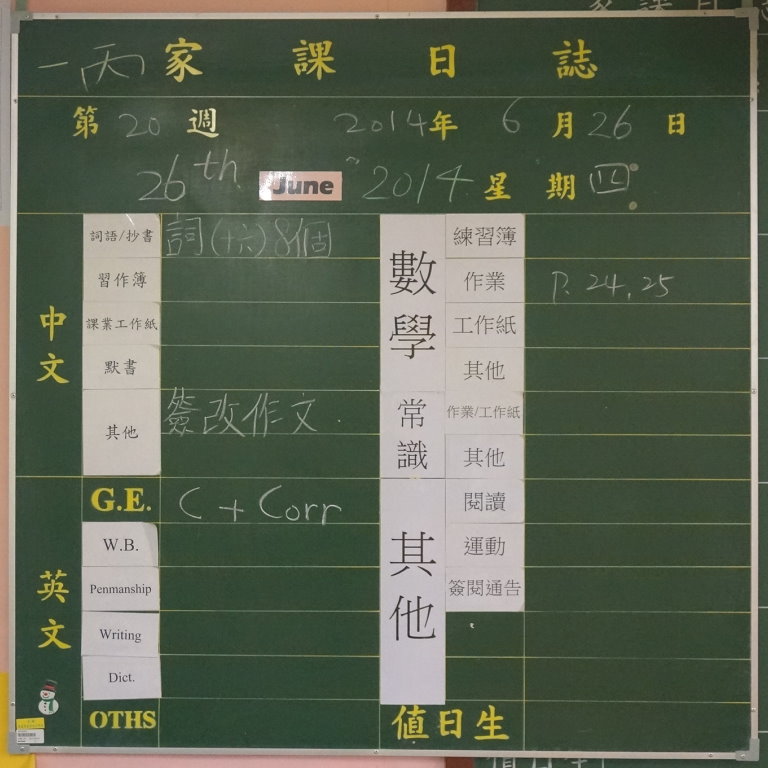 一丙 家課日誌
第 20 週 2014 年 6 月 26 日
26th June 2014 星期 四
中文
詞語/抄書 詞(十六)8個
習作簿
課業工作紙
默書
其他 簽改作文.
英文
G.E. C + Corr
W.B.
Penmanship
Writing
Dict.
OTHS
數學
練習簿
作業 P. 24, 25
工作紙
其他
常識
作業/工作紙
其他
其他
閱讀
運動
簽閱通告
值日生